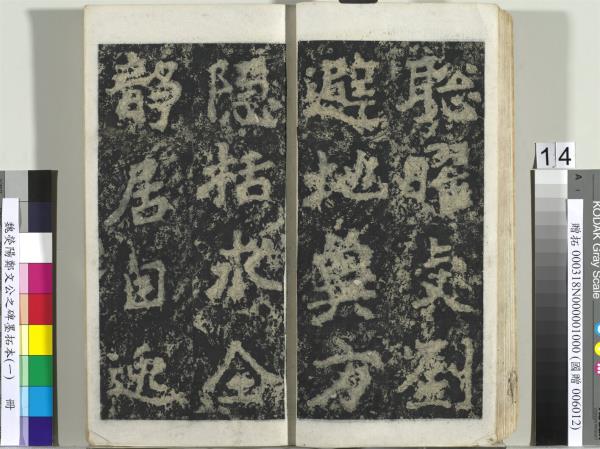 聰曜虔劉
避地冀方
隱括求全
靜居自逸
14
KODAK Gray Scale
贈拓 000318N000001000 (國贈 006012)
魏滎陽鄭文公之碑墨拓本(一) 冊